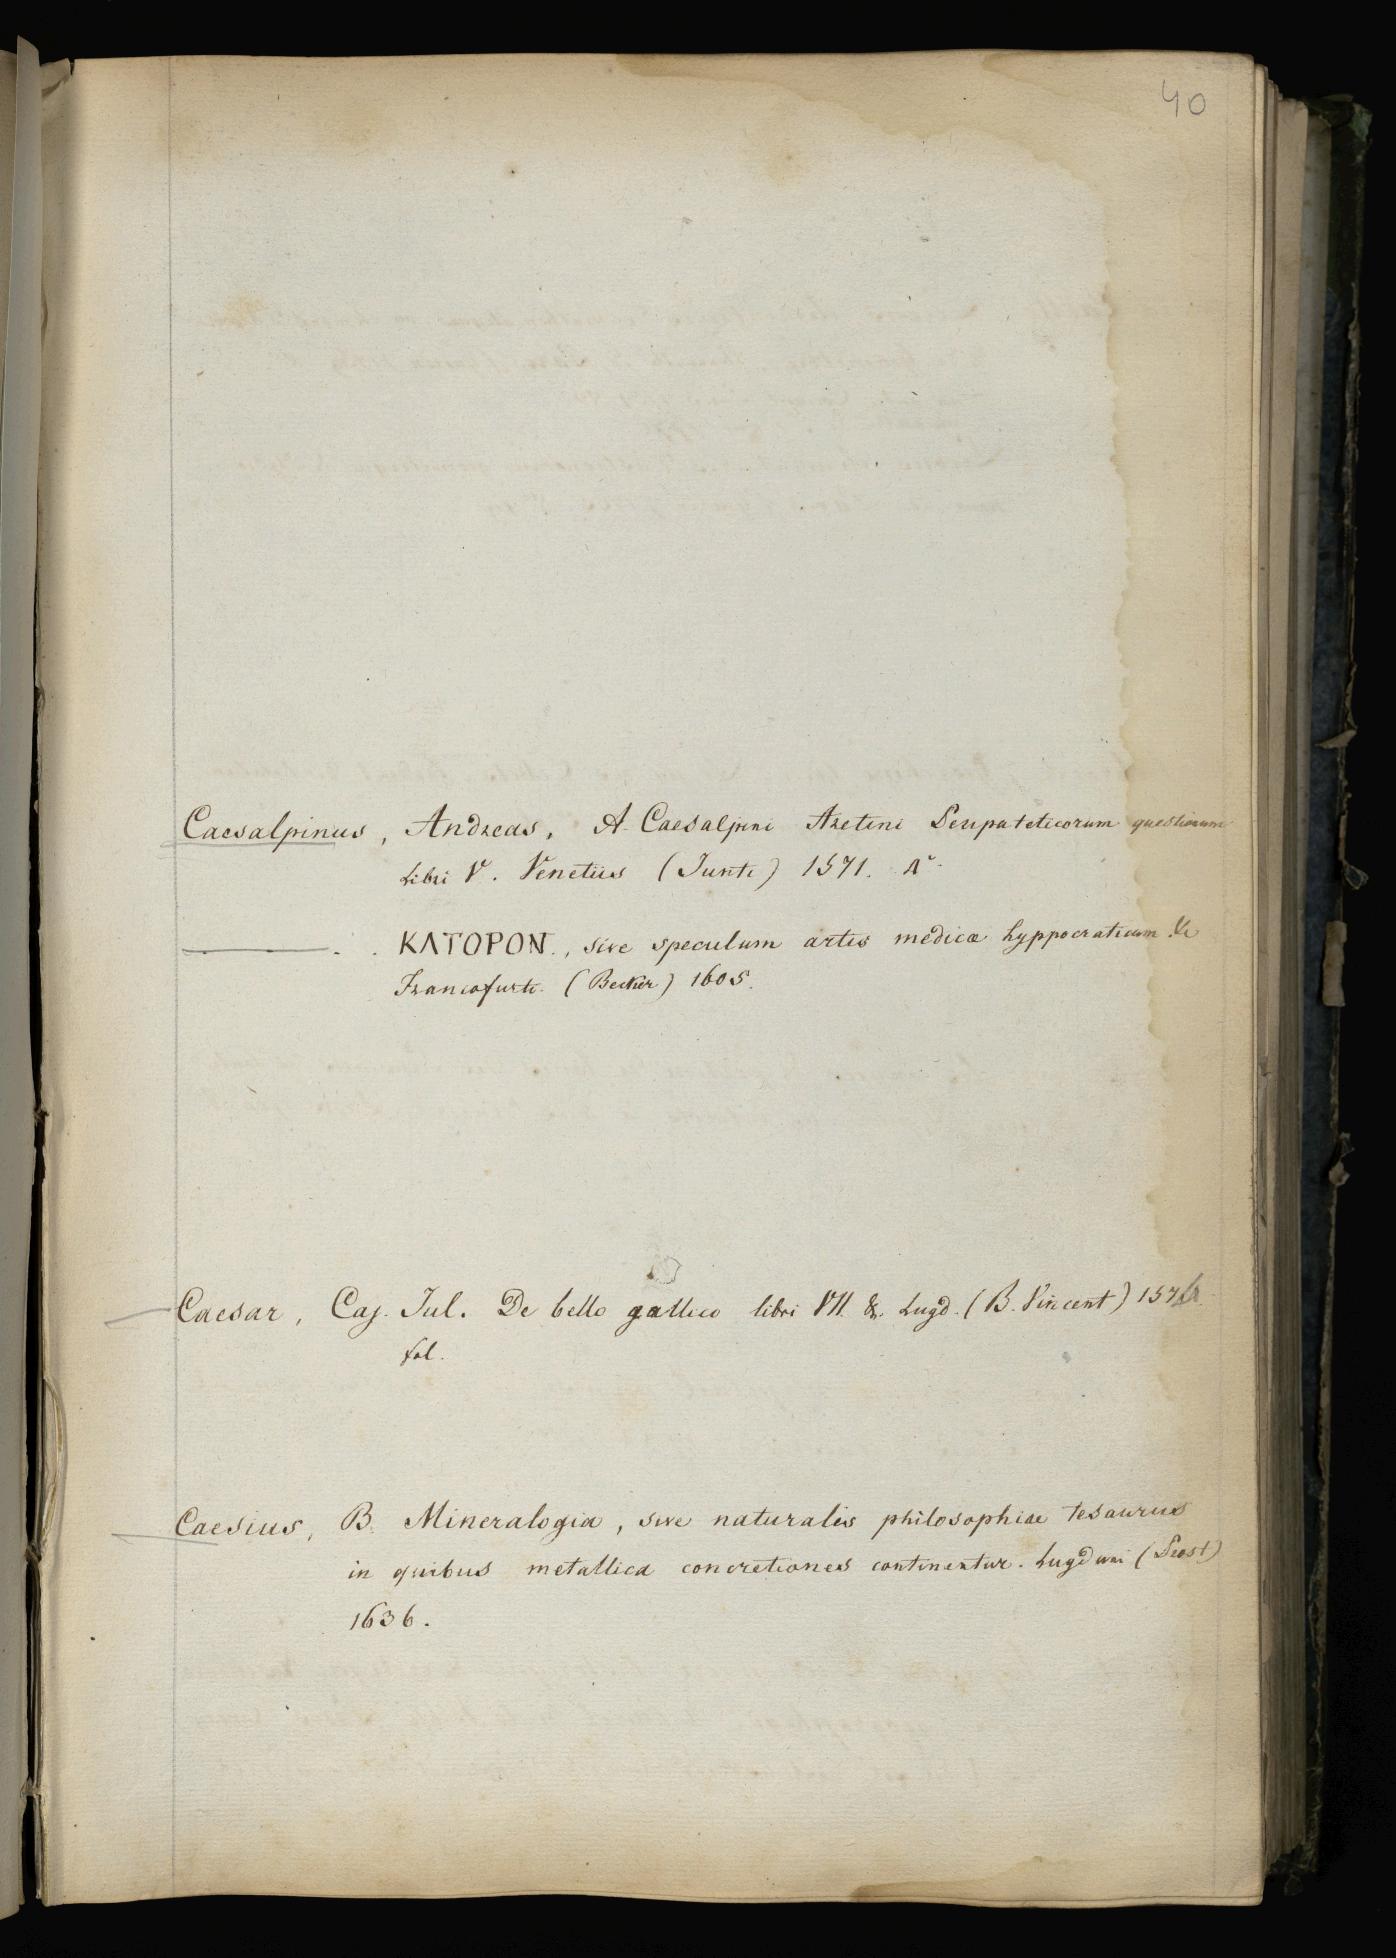 40
Caesalpinus, Andreas, A. Caesalpini Aretini Peripateticorum questionum
Libri V. Venetiis (Junte) 1571. 4°.
KATOPON., sive speculum artis medicæ hyppocraticum &c
Francofurti. (Becker) 1605.
Caesar, Caj. Jul. De bello gallico libri VII. &c. Lugd. (B. Vincent) 157
fol.
Caesius, B. Mineralogia, sive naturalis philosophiae tesaurus
in quibus metallica concretiones continentur. Lugduni (Prost)
1636.